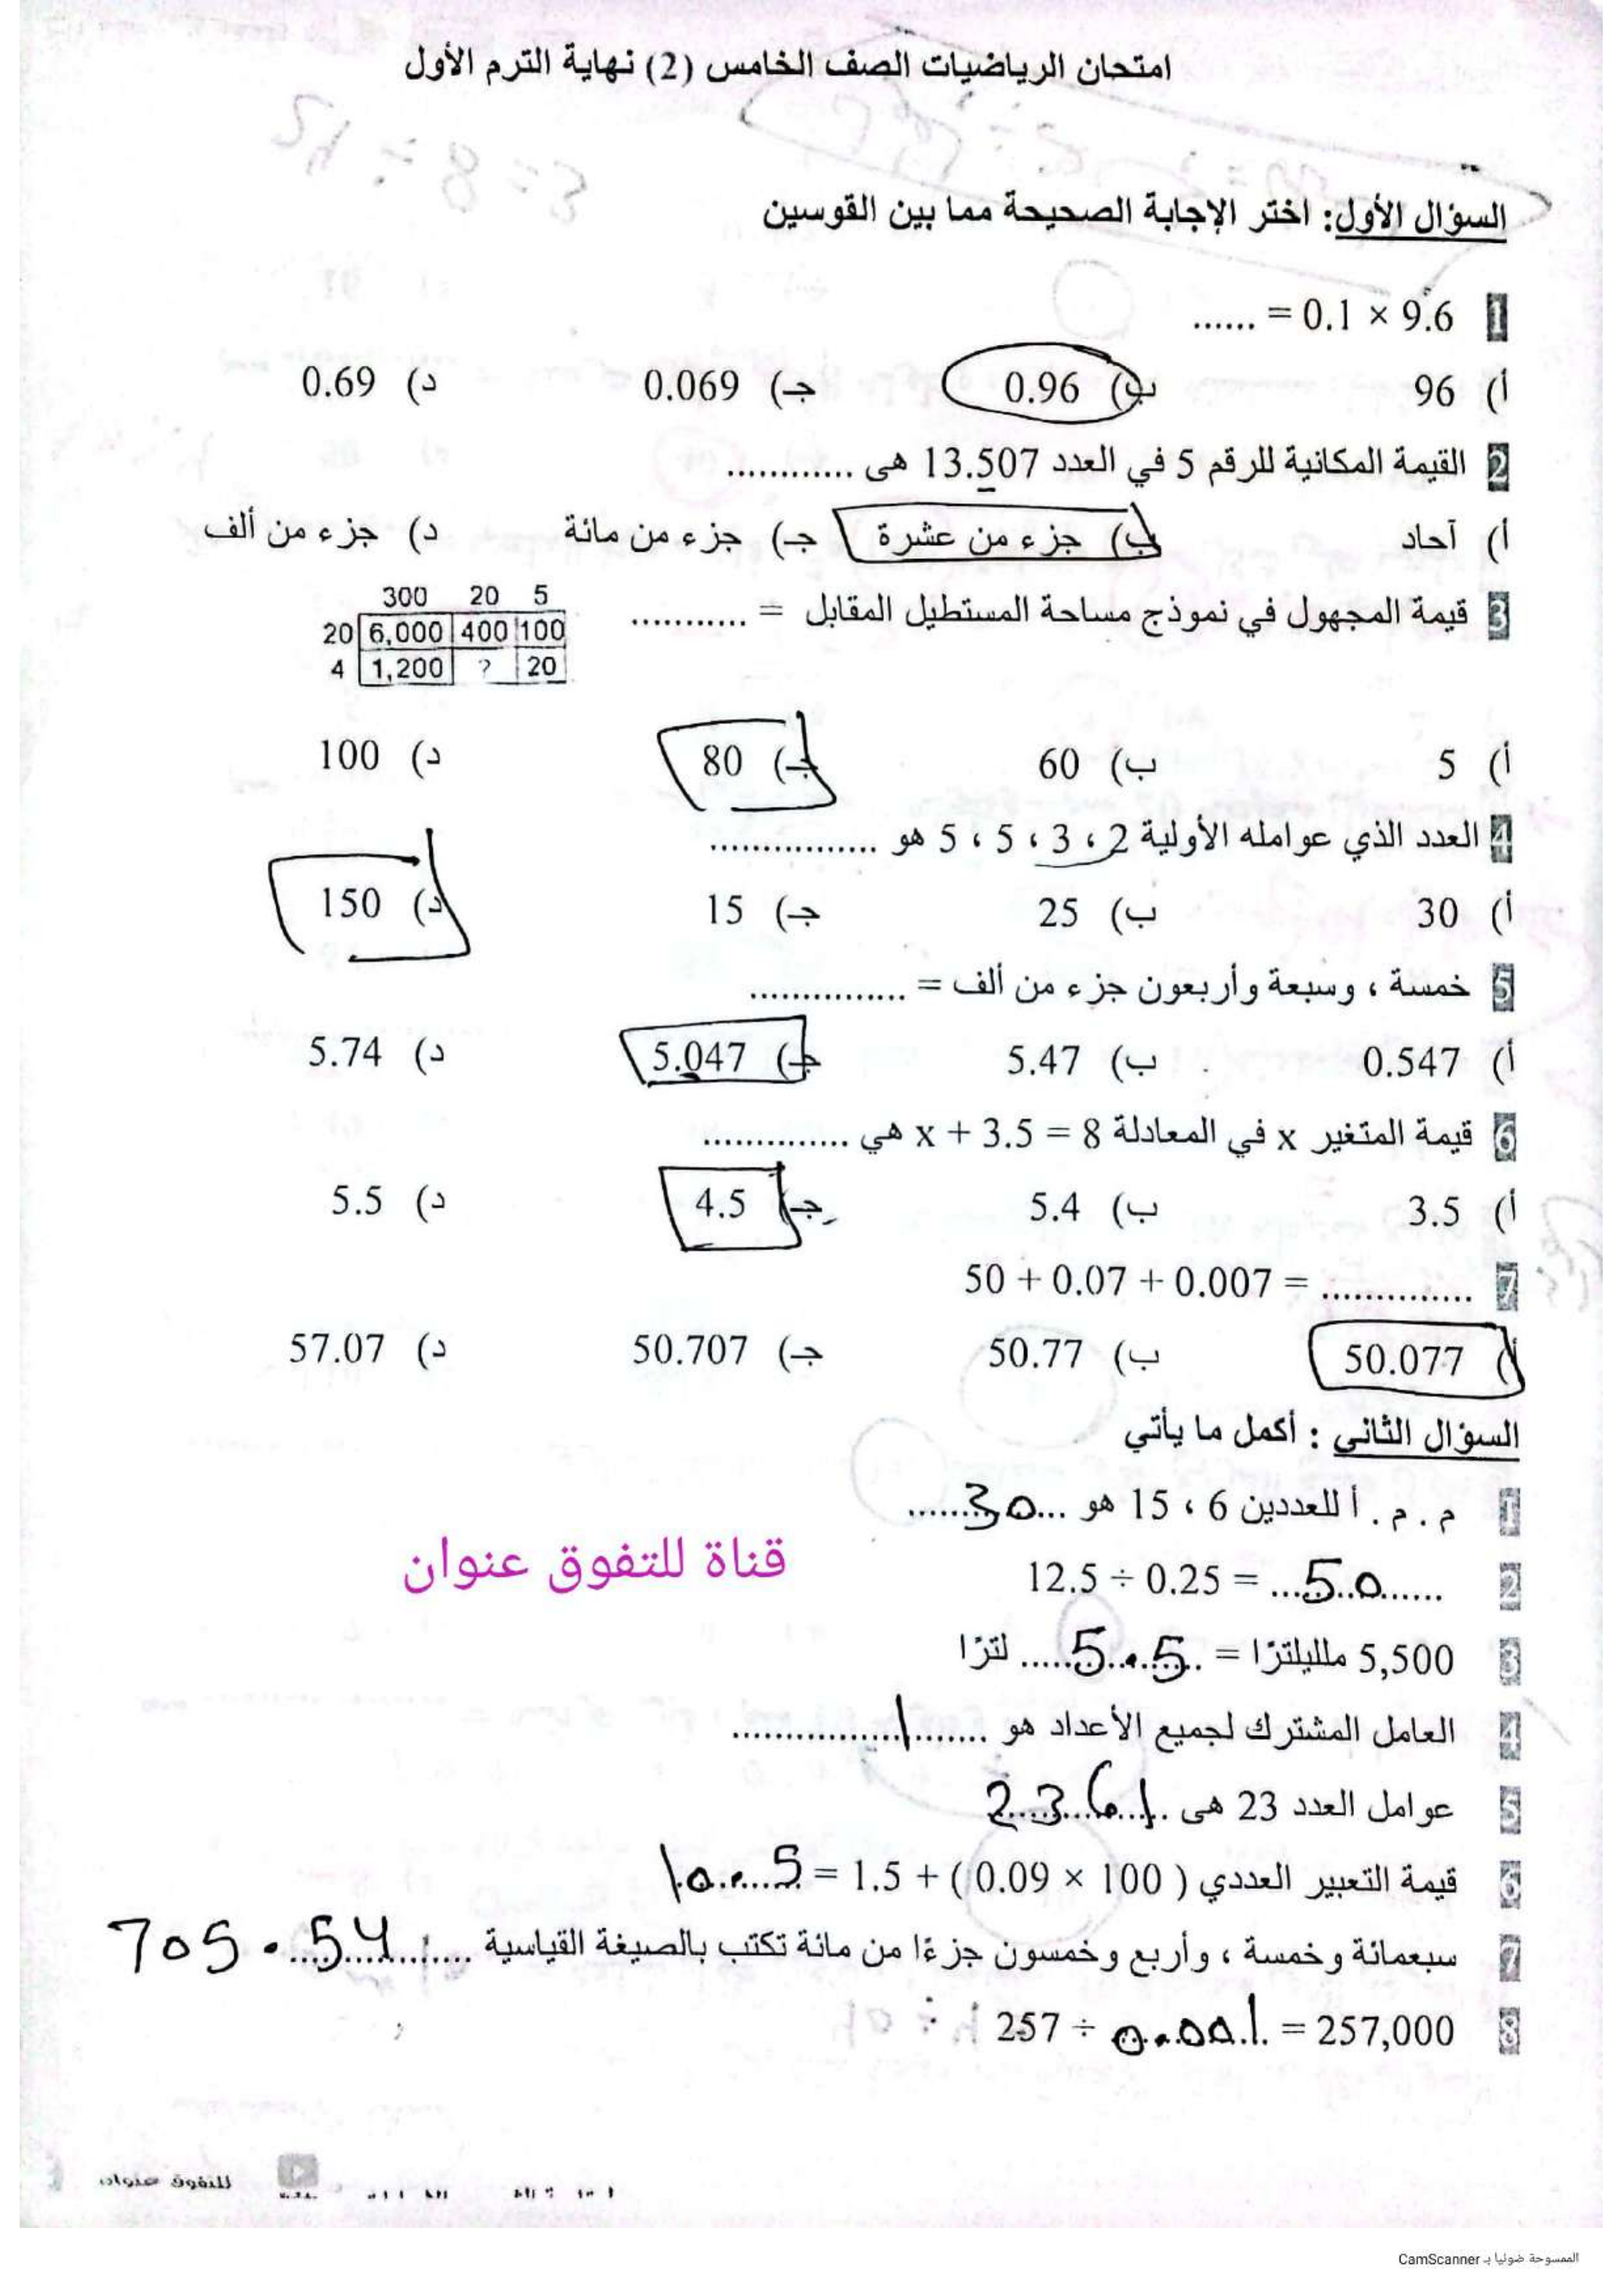 امتحان الرياضيات الصف الخامس (2) نهاية الترم الأول
السؤال الأول: اختر الإجابة الصحيحة مما بين القوسين
1 9.6 × 0.1 = ......
أ) 96 ب) 0.96 جـ) 0.069 د) 0.69
2 القيمة المكانية للرقم 5 في العدد 13.507 هى ............
أ) آحاد ب) جزء من عشرة جـ) جزء من مائة د) جزء من ألف
3 قيمة المجهول في نموذج مساحة المستطيل المقابل = ...........
300 20 5
20 6,000 400 100
4 1,200 ? 20
أ) 5 ب) 60 جـ) 80 د) 100
4 العدد الذي عوامله الأولية 2 ، 3 ، 5 ، 5 هو ................
أ) 30 ب) 25 جـ) 15 د) 150
5 خمسة ، وسبعة وأربعون جزء من ألف = ...............
أ) 0.547 ب) 5.47 جـ) 5.047 د) 5.74
6 قيمة المتغير x في المعادلة x + 3.5 = 8 هي ..............
أ) 3.5 ب) 5.4 جـ) 4.5 د) 5.5
7 50 + 0.07 + 0.007 = ..............
أ) 50.077 ب) 50.77 جـ) 50.707 د) 57.07
السؤال الثاني : أكمل ما يأتي
1 م . م . أ للعددين 6 ، 15 هو ...30......
2 12.5 ÷ 0.25 = ...50......
قناة للتفوق عنوان
3 5,500 ملليلترًا = ...5.5..... لترًا
4 العامل المشترك لجميع الأعداد هو .......1...............
5 عوامل العدد 23 هى ..1، 23
6 قيمة التعبير العددي ( 100 × 0.09) + 1.5 = 10.5
7 سبعمائة وخمسة ، وأربع وخمسون جزءًا من مائة تكتب بالصيغة القياسية ....705.54
8 257 ÷ 0.001 = 257,000
للتفوق عنوان
الممسوحة ضوئيا بـ CamScanner